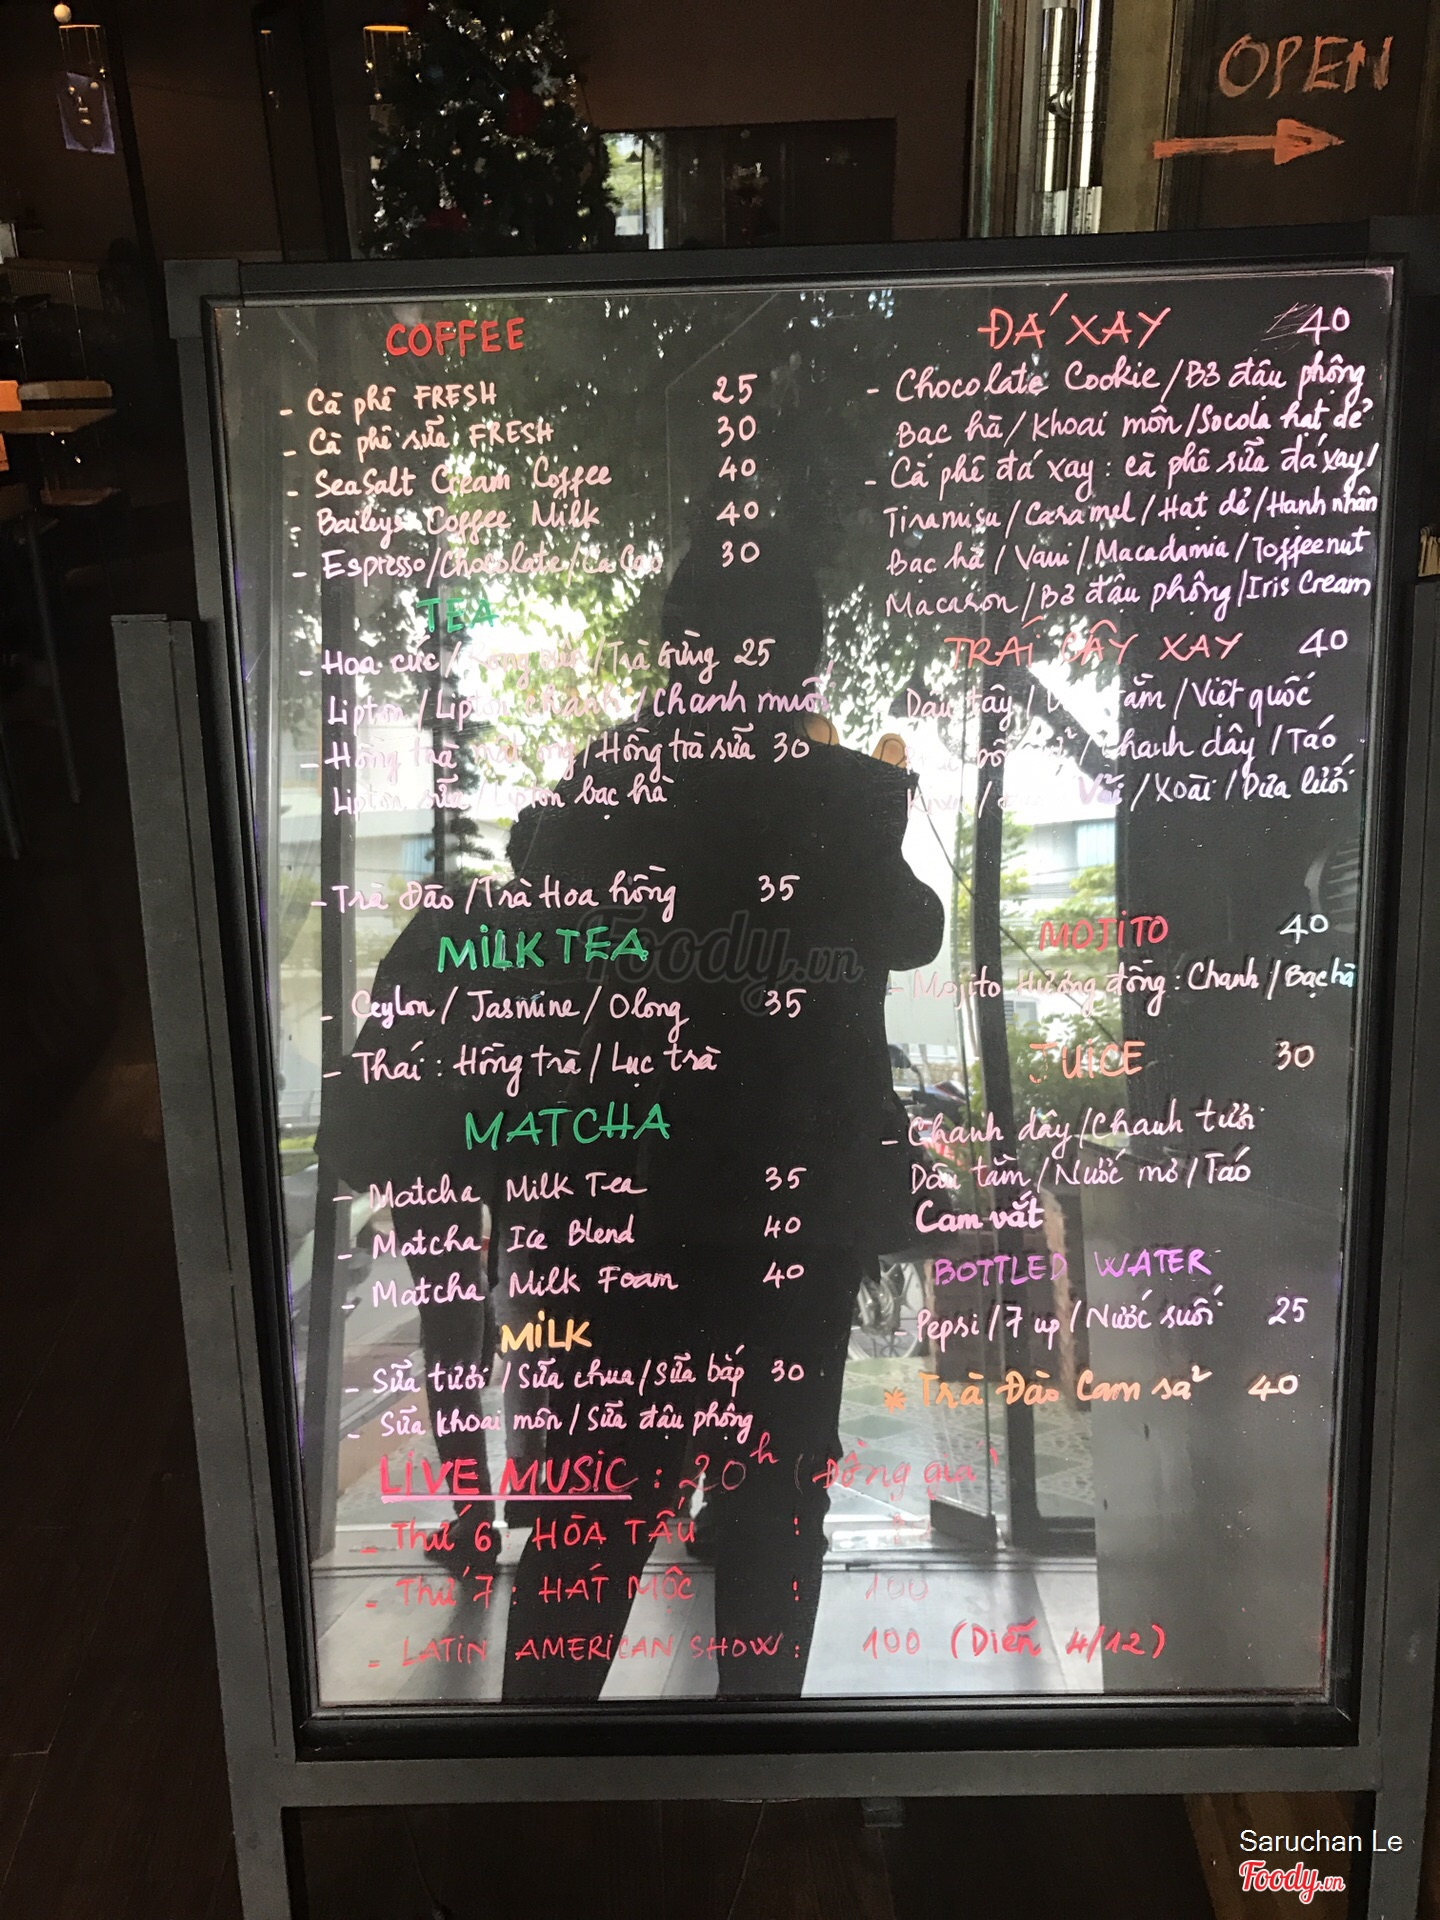 OPEN
COFFEE
- Cà phê FRESH 25
- Cà phê sữa FRESH 30
- SeaSalt Cream Coffee 40
- Baileys Coffee Milk 40
- Espresso/Chocolate/Ca Cao 30
TEA
- Hoa cúc / /Trà Gừng 25
Lipton / Lipton chanh / Chanh muối
- Hồng trà mật ong/Hồng trà sữa 30
Lipton sữa/Lipton bạc hà
- Trà Đào /Trà Hoa hồng 35
MILK TEA
- Ceylon / Jasmine / Olong 35
- Thái : Hồng trà / Lục trà
MATCHA
- Matcha Milk Tea 35
- Matcha Ice Blend 40
- Matcha Milk Foam 40
MILK
- Sữa tươi / Sữa chua / Sữa bắp 30
- Sữa khoai môn / Sữa đậu phộng
LIVE MUSIC : 20h (Đồng giá)
- Thứ 6 : HÒA TẤU :
- Thứ 7 : HÁT MỘC : 100
- LATIN AMERICAN SHOW : 100 (Diễn 4/12)
ĐÁ XAY 40
- Chocolate Cookie / Bơ đậu phộng
Bạc hà / Khoai môn /Socola hạt dẻ
- Cà phê đá xay : cà phê sữa đá xay/
Tiramisu / Caramel / Hạt dẻ / Hạnh nhân
Bạc hà / Vani / Macadamia / Toffeenut
Macaron / Bơ đậu phộng / Iris Cream
TRÁI CÂY XAY 40
Dâu tây / tằm / Việt quốc
/ Chanh dây / Táo
Kiwi / Vải / Xoài / Dưa lưới
MOJITO 40
- Mojito Hương đồng : Chanh / Bạc hà
JUICE 30
- Chanh dây / Chanh tươi
Dâu tằm / Nước mơ / Táo
Cam vắt
BOTTLED WATER
- Pepsi / 7 up / Nước suối 25
* Trà Đào Cam sả 40
Foody.vn
Saruchan Le
Foody.vn